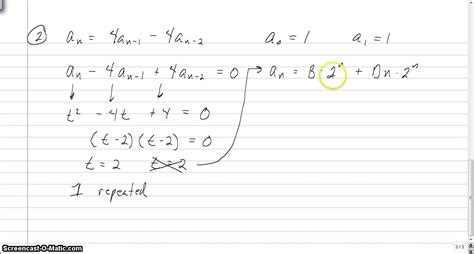 ② aₙ = 4aₙ₋₁ - 4aₙ₋₂ a₀ = 1 a₁ = 1
aₙ - 4aₙ₋₁ + 4aₙ₋₂ = 0 → aₙ = B · 2ⁿ + Dn · 2ⁿ
↓ ↓ ↓
t² - 4t + 4 = 0
(t-2)(t-2) = 0
t = 2 t = 2
1 repeated
3 / 3
Screencast-O-Matic.com